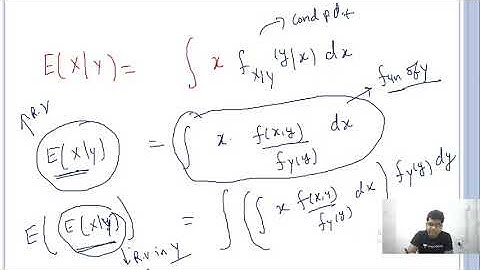 cond p.d.f
E(X|Y) = ∫ x f_{X|Y}(y|x) dx
fun of y
↑R.V
E(X|Y) = ∫ x · f(x,y)/f_Y(y) dx
E(E(X|Y)) = ∫(∫ x f(x,y)/f_Y(y) dx) f_Y(y) dy
↓R.V in Y